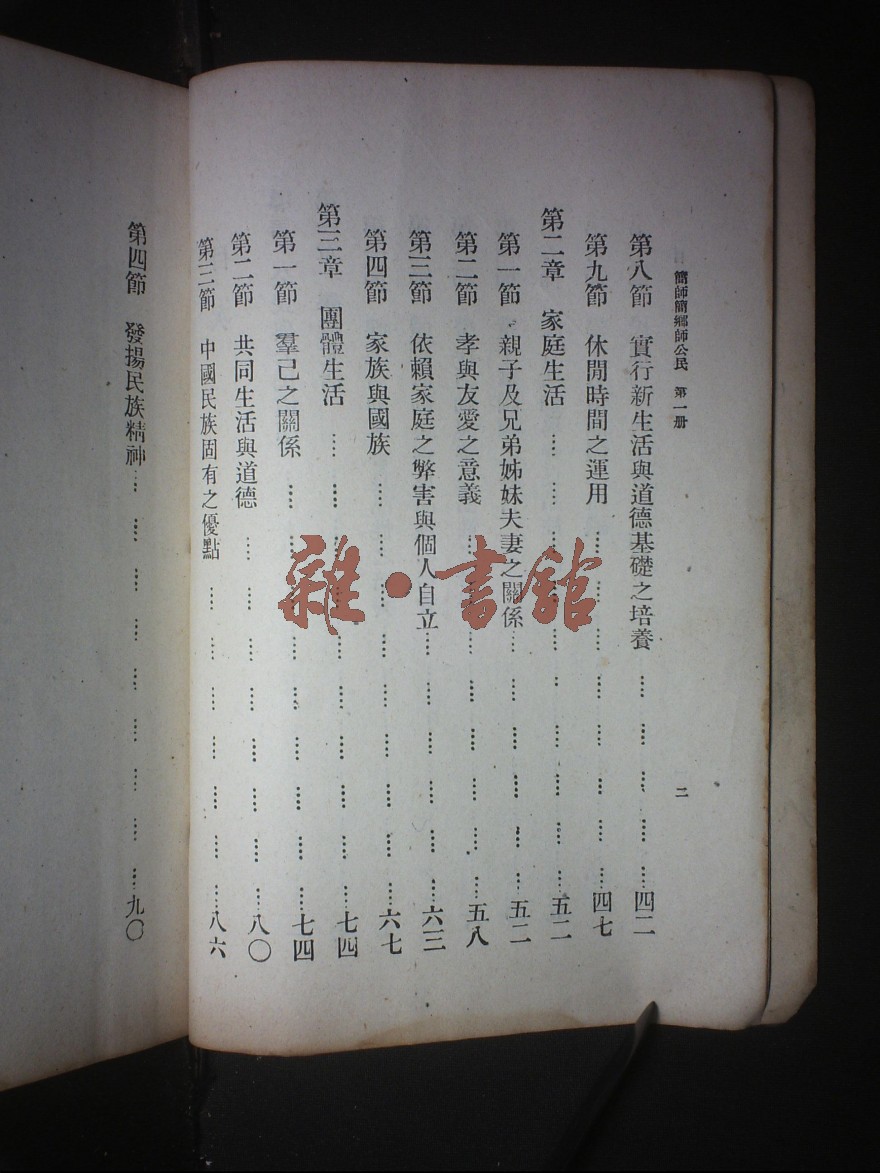 簡師簡鄉師公民 第一册
二
第八節 實行新生活與道德基礎之培養 四二
第九節 休閒時間之運用 四七
第二章 家庭生活 五二
第一節 親子及兄弟姊妹夫妻之關係 五二
第二節 孝與友愛之意義 五八
第三節 依賴家庭之弊害與個人自立 六三
第四節 家族與國族 六七
第三章 團體生活 七四
第一節 羣己之關係 七四
第二節 共同生活與道德 八〇
第三節 中國民族固有之優點 八六
第四節 發揚民族精神 九〇
雜·書館